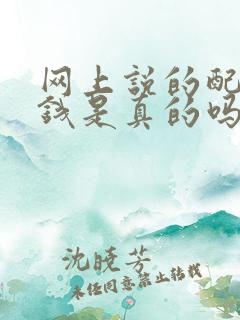 网上说的配
钱是真的吗
沈晓芳
未经同意禁止转载